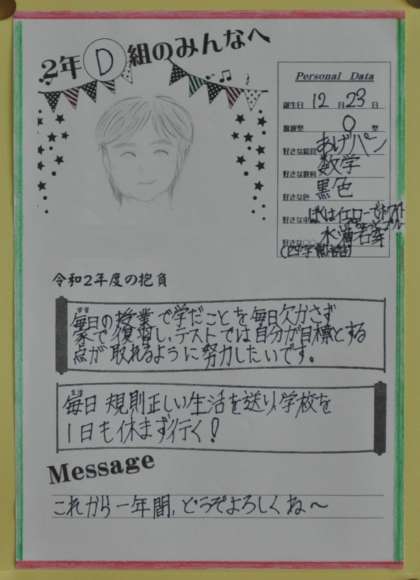 2年D組のみんなへ
Personal Data
誕生日 12月23日
血液型 O 型
好きな給食 あげパン
好きな教科 数学
好きな色 黒色
好きな
水海
令和2年度の抱負
毎日の授業で学だことを毎日欠かさず
家で復習し、テストでは自分が目標とする
点が取れるように努力したいです。
毎日規則正しい生活を送り、学校を
1日も休まず行く!
Message
これから一年間、どうぞよろしくね〜